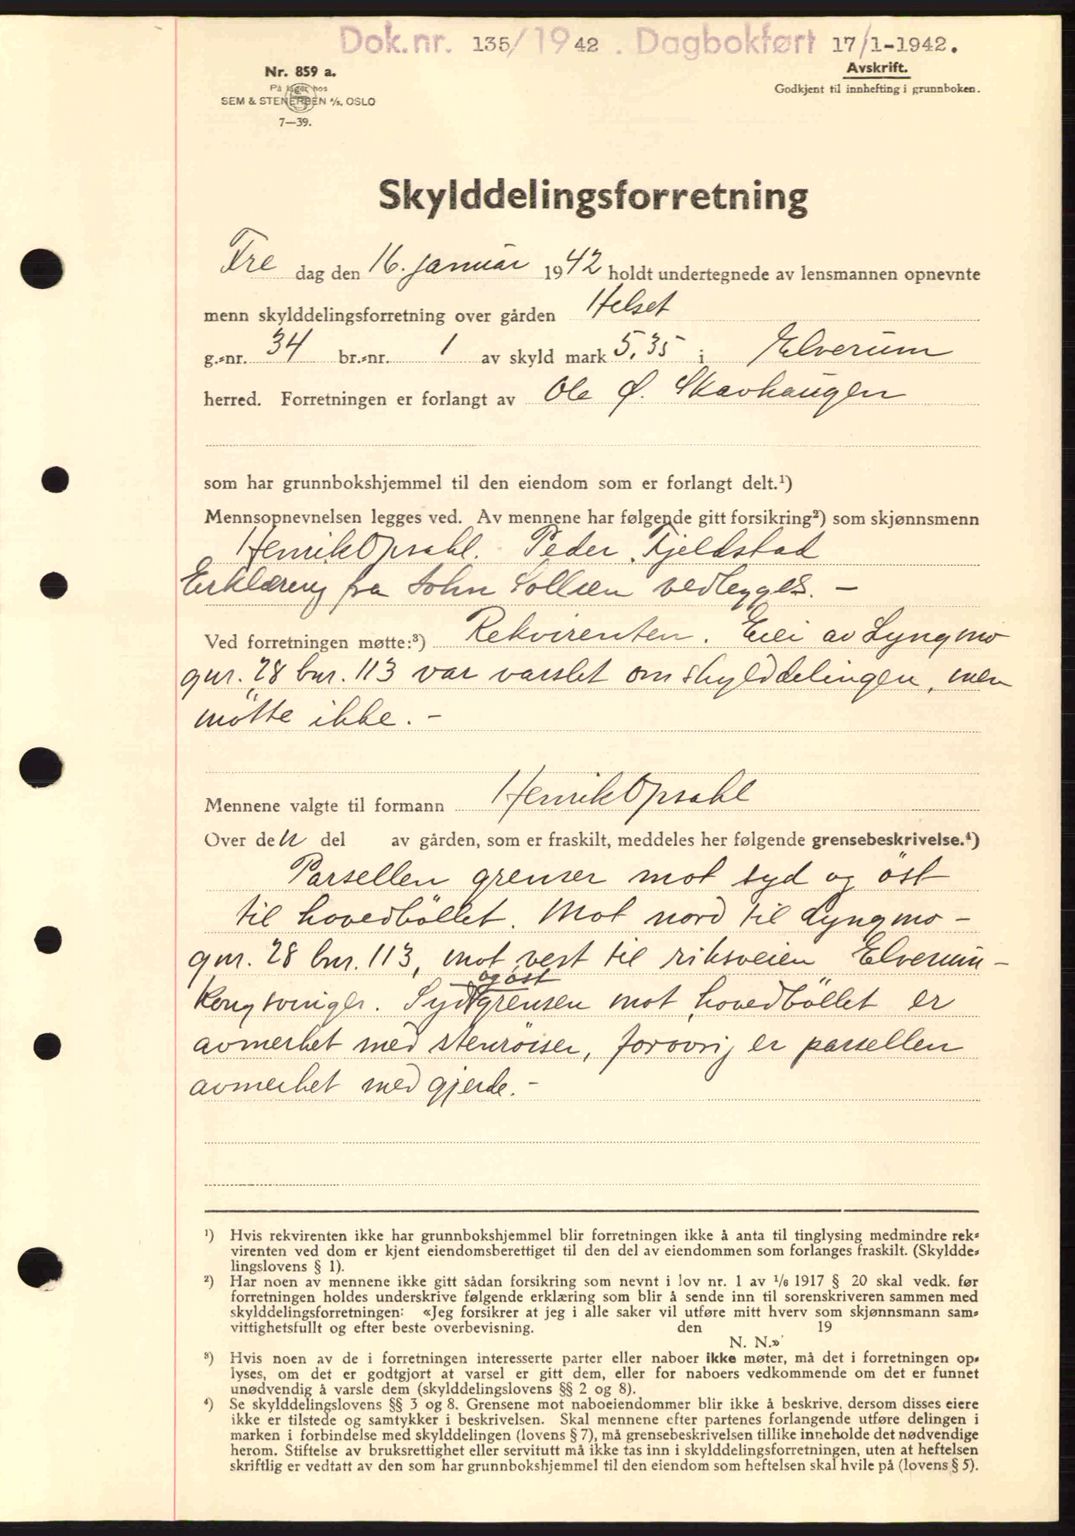 Dok.nr. 135/1942 . Dagbokført 17/1-1942.
Nr. 859 a.
På lager hos
SEM & STENERSEN A/S, OSLO
7—39.
Avskrift.
Godkjent til innhefting i grunnboken.
Skylddelingsforretning
Fre dag den 16. januar 1942 holdt undertegnede av lensmannen opnevnte
menn skylddelingsforretning over gården Helset
g.=nr. 34 br.=nr. 1 av skyld mark 5,35 i Elverum
herred. Forretningen er forlangt av Ole Ø. Skavhaugen
som har grunnbokshjemmel til den eiendom som er forlangt delt.¹)
Mennsopnevnelsen legges ved. Av mennene har følgende gitt forsikring²) som skjønnsmenn
Henrik Opsahl. Peder Fjeldstad
Erklæring fra John Sollien vedlegges. —
Ved forretningen møtte:³) Rekvirenten. Eier av Lyngmo
gnr. 28 bnr. 113 var varslet om skylddelingen, men
møtte ikke. —
Mennene valgte til formann Henrik Opsahl
Over den del av gården, som er fraskilt, meddeles her følgende grensebeskrivelse.⁴)
Parsellen grenser mot syd og öst
til hovedböllet. Mot nord til Lyngmo –
gnr. 28 bnr. 113, mot vest til riksveien Elverum –
og öst
Kongsvinger. Sydgrensen mot hovedböllet er
avmerket med stenröiser, forövrig er parsellen
avmerket med gjerde. –
¹) Hvis rekvirenten ikke har grunnbokshjemmel blir forretningen ikke å anta til tinglysing medmindre rek=
virenten ved dom er kjent eiendomsberettiget til den del av eiendommen som forlanges fraskilt. (Skyldde=
lingslovens § 1).
²) Har noen av mennene ikke gitt sådan forsikring som nevnt i lov nr. 1 av 1/6 1917 § 20 skal vedk. før
forretningen holdes underskrive følgende erklæring som blir å sende inn til sorenskriveren sammen med
skylddelingsforretningen: «Jeg forsikrer at jeg i alle saker vil utføre mitt hverv som skjønnsmann sam=
vittighetsfullt og efter beste overbevisning. den 19
N. N.»
³) Hvis noen av de i forretningen interesserte parter eller naboer ikke møter, må det i forretningen op=
lyses, om det er godtgjort at varsel er gitt dem, eller for naboers vedkommende om det er funnet
unødvendig å varsle dem (skylddelingslovens §§ 2 og 8).
⁴) Se skylddelingslovens §§ 3 og 8. Grensene mot naboeiendommer blir ikke å beskrive, dersom disses eiere
ikke er tilstede og samtykker i beskrivelsen. Skal mennene efter partenes forlangende utføre delingen i
marken i forbindelse med skylddelingen (lovens § 7), må grensebeskrivelsen tillike inneholde det nødvendige
herom. Stiftelse av bruksrettighet eller servitutt må ikke tas inn i skylddelingsforretningen, uten at heftelsen
skriftlig er vedtatt av den som har grunnbokshjemmel til den eiendom som heftelsen skal hvile på (lovens § 5).